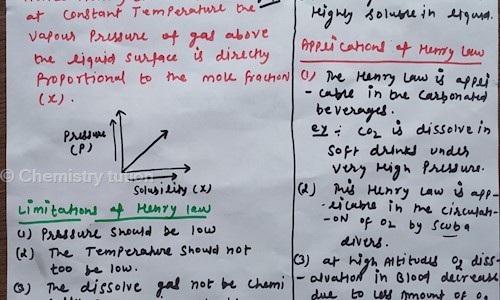 at Constant Temperature the
Vapour Pressure of gas above
the liquid surface is directly
Proportional to the mole fraction
(x).
Pressure
(P)
Solubility (X)
© Chemistry tution
Limitations of Henry law
(1) Pressure should be low
(2) The Temperature should not
too be low.
(3) The dissolve gas not be chemi
Highly soluble in liquid.
Applications of Henry Law
(1) The Henry Law is appli
-cable in the carbonated
beverages.
ex: CO2 is dissolve in
Soft drinks under
very High Pressure.
(2) This Henry Law is app-
-licable in the circulati-
-on of O2 by scuba
divers.
(3) at High Altitudes O2 diss-
-alvation in Blood decreases
due to less amount of O2